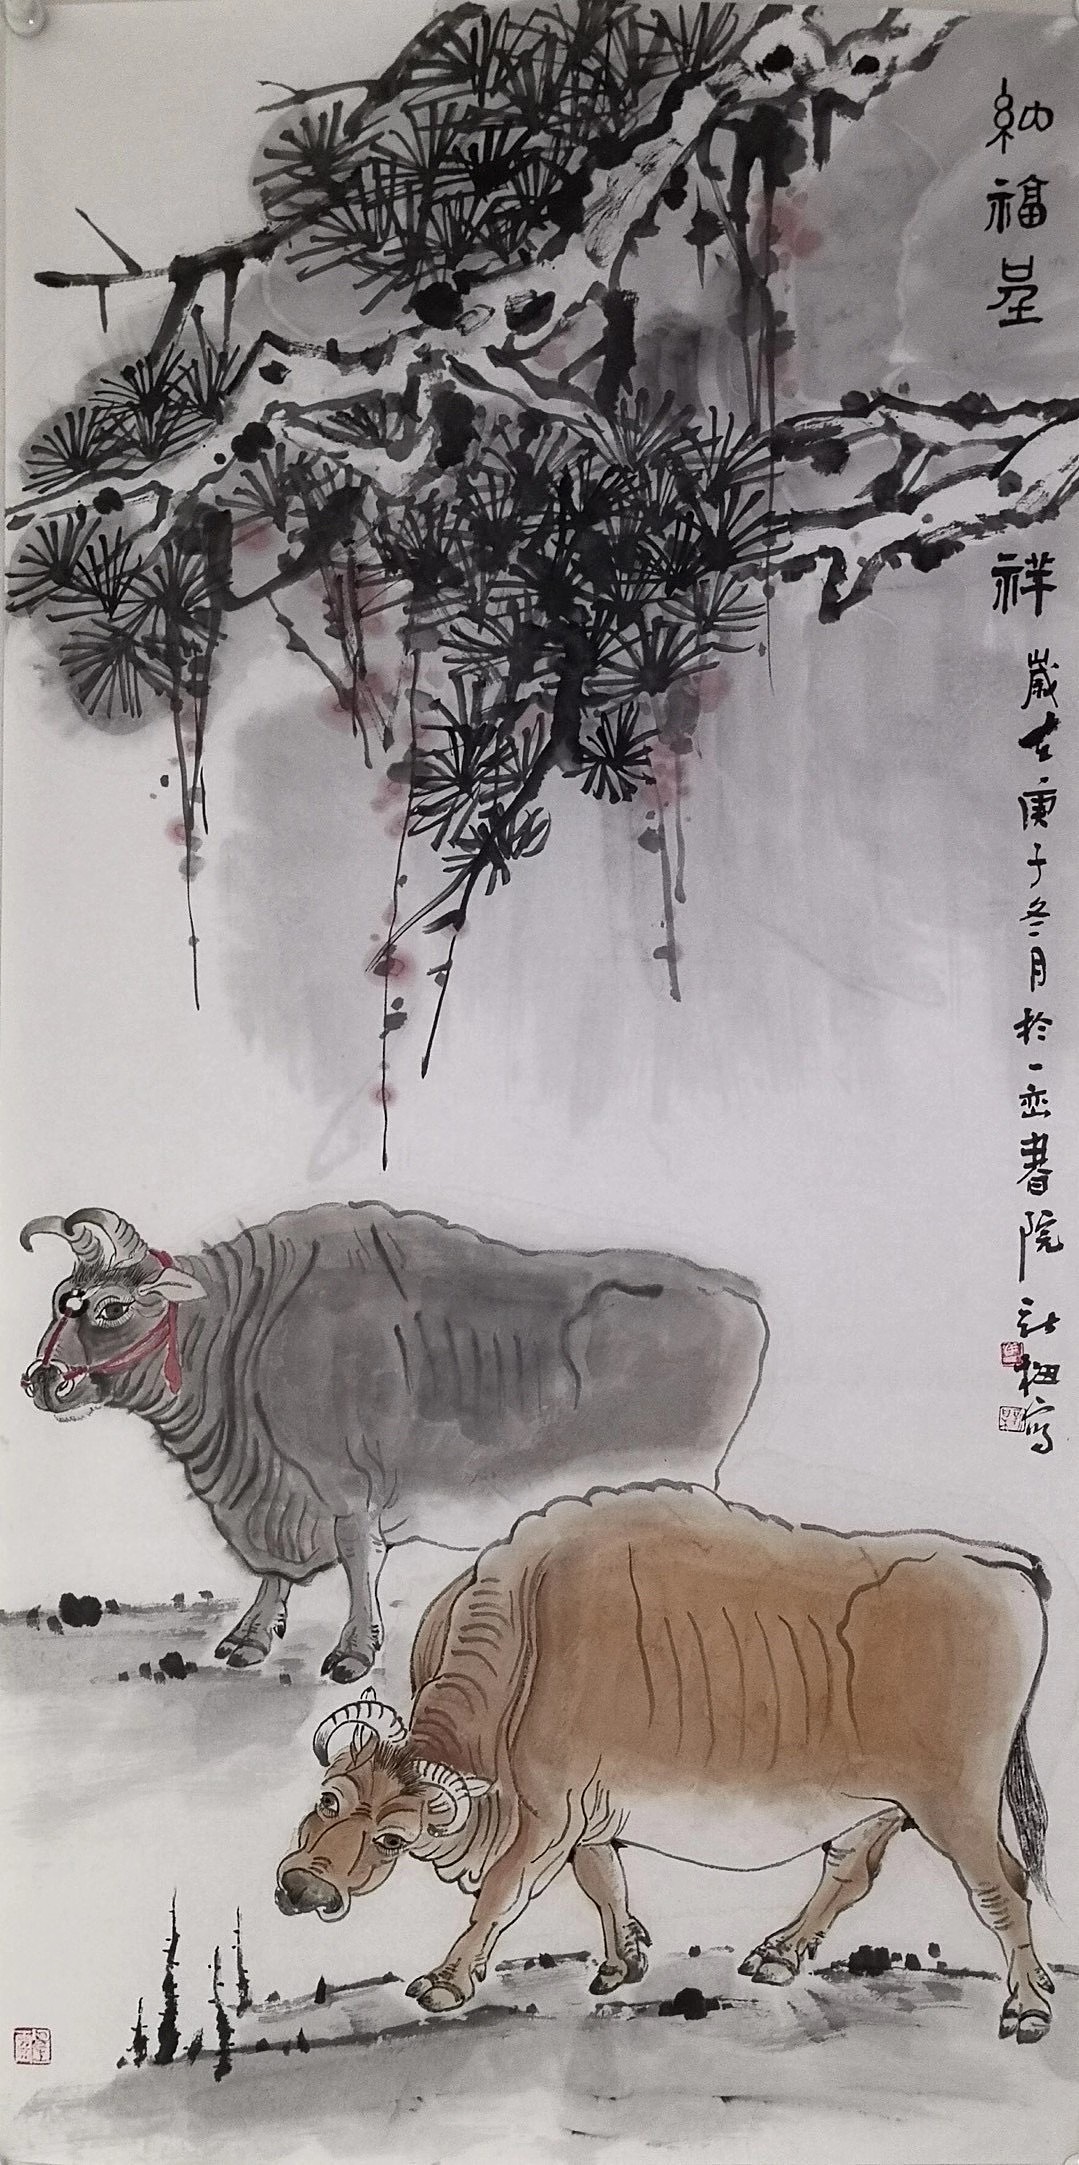 納福呈祥 歲在庚子冬月於一峦書院寫